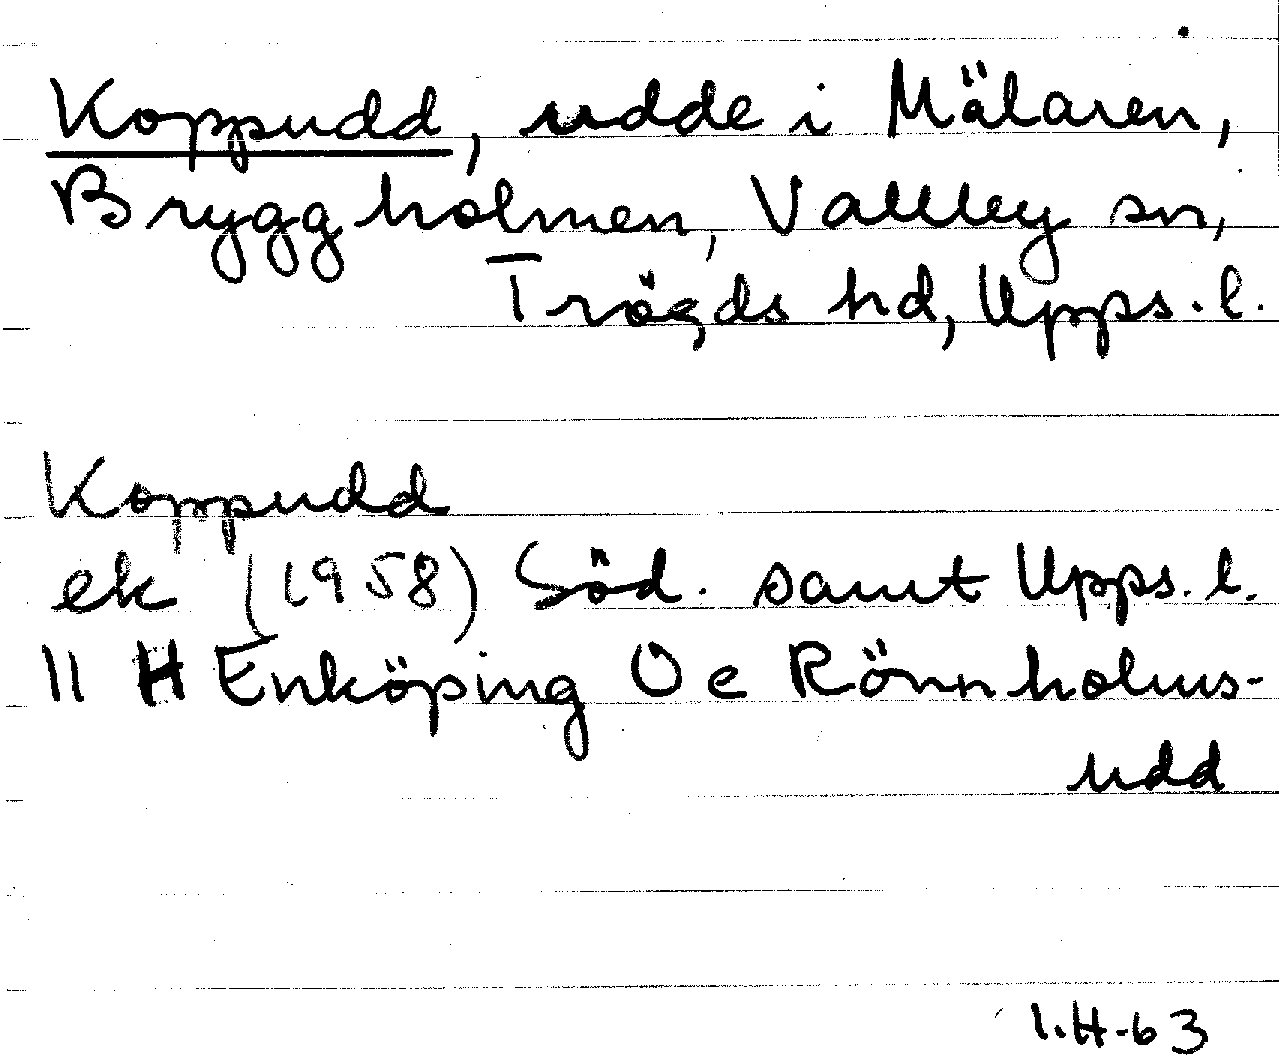 Koppudd, udde i Mälaren,
Bryggholmen, Vallby sn,
Trögds hd, Upps. l.
Koppudd
ek (1958) Söd. samt Upps. l.
11 H Enköping O e Rönnholms-
udd
1.H-63